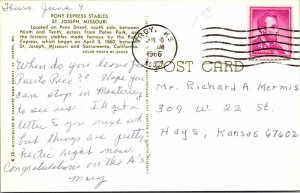 Thurs. June 9
PONY EXPRESS STABLES
ST. JOSEPH, MISSOURI
Located on Penn Street, south side, between
Ninth and Tenth, across from Patee Park, are
the historic stables made famous by the Pony
Express, which began on April 3, 1860, between
St. Joseph, Missouri and Sacramento, California.
When do you leave for
Puerto Rico?? Hope you
can stop in Monterey
to see us. I'll get a
letter to you next wk
but things are pretty
hectic right now.
Congratulations on the A's
Mary
POST CARD
JUN 9
AM
1966
Mr. Richard A Mermis
309 W. 22 St.
Hays, Kansas 67602